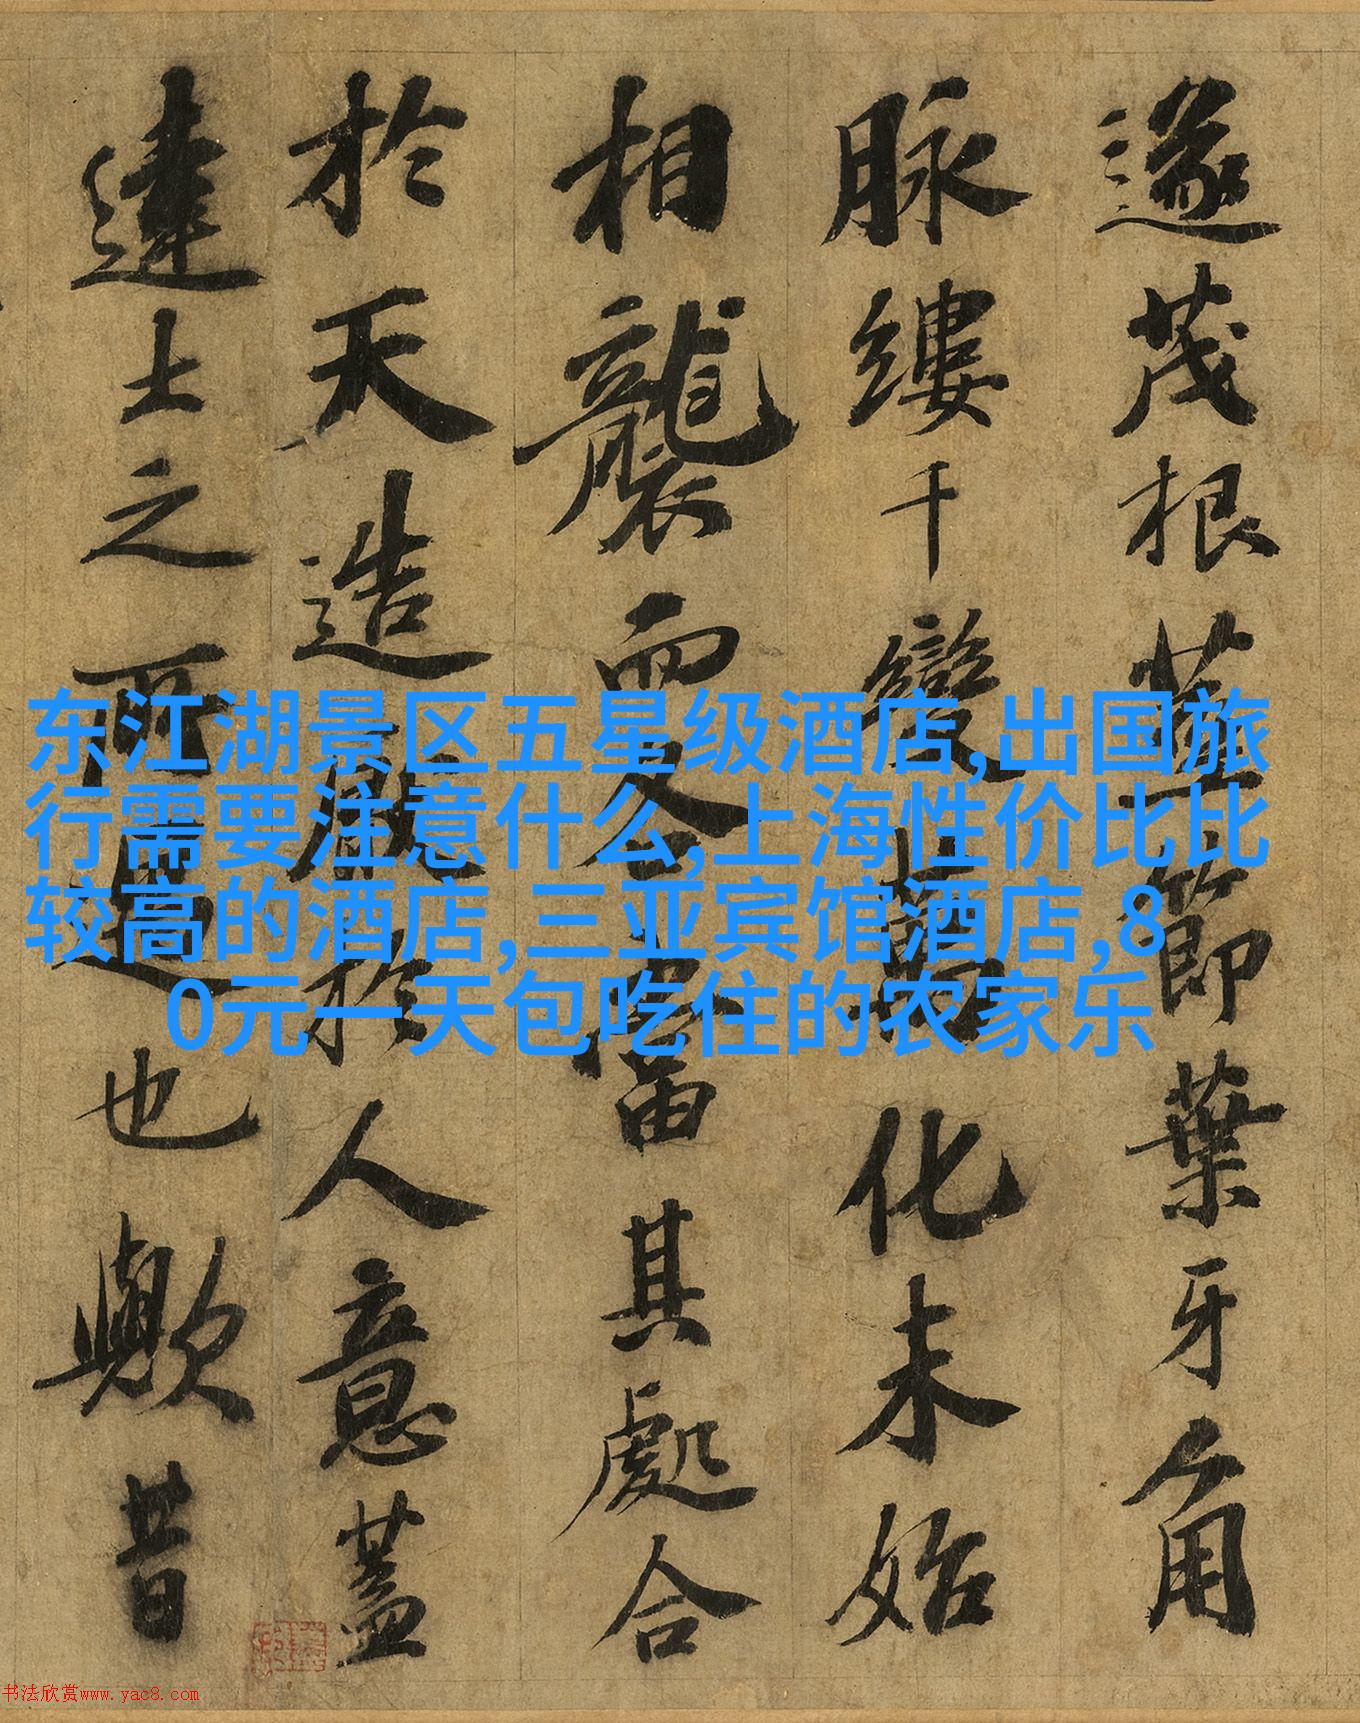 遂茂根莖節葉牙角
脉縷千變萬化未始
相襲而各當其處合
於天造厭於人意蓋
達士之所也歟昔
东江湖景区五星级酒店,出国旅
行需要注意什么,上海性价比比
较高的酒店,三亚宾馆酒店,8
0元一天包吃住的农家乐
书法欣赏www.yac8.com